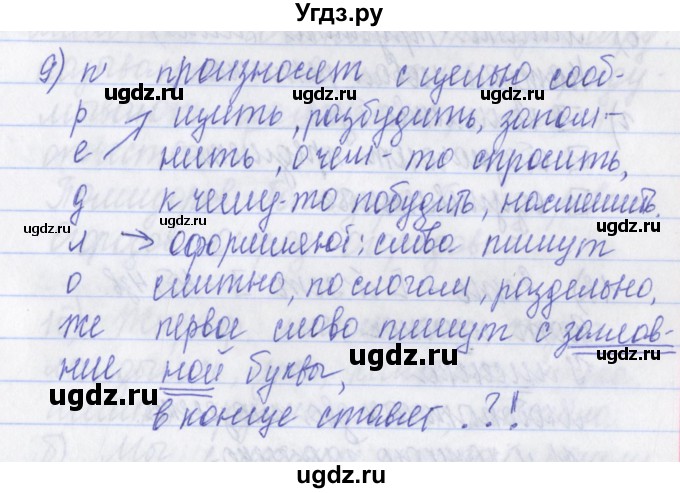 Угдз.ру
9) п произносят с целью сооб-
р щить, разбудить, запом-
е нить, о чем-то спросить,
д к чему-то побудить, насмешить.
л → оформляют: слова пишут
о слитно, по слогам, раздельно,
же первое слово пишут с заглав-
ние ной буквы,
в конце ставят . ? !
ugdz.ru
ugdz.ru
ugdz.ru
ugdz.ru
ugdz.ru
ugdz.ru
ugdz.ru
ugdz.ru
ugdz.ru
ugdz.ru
ugdz.ru
ugdz.ru